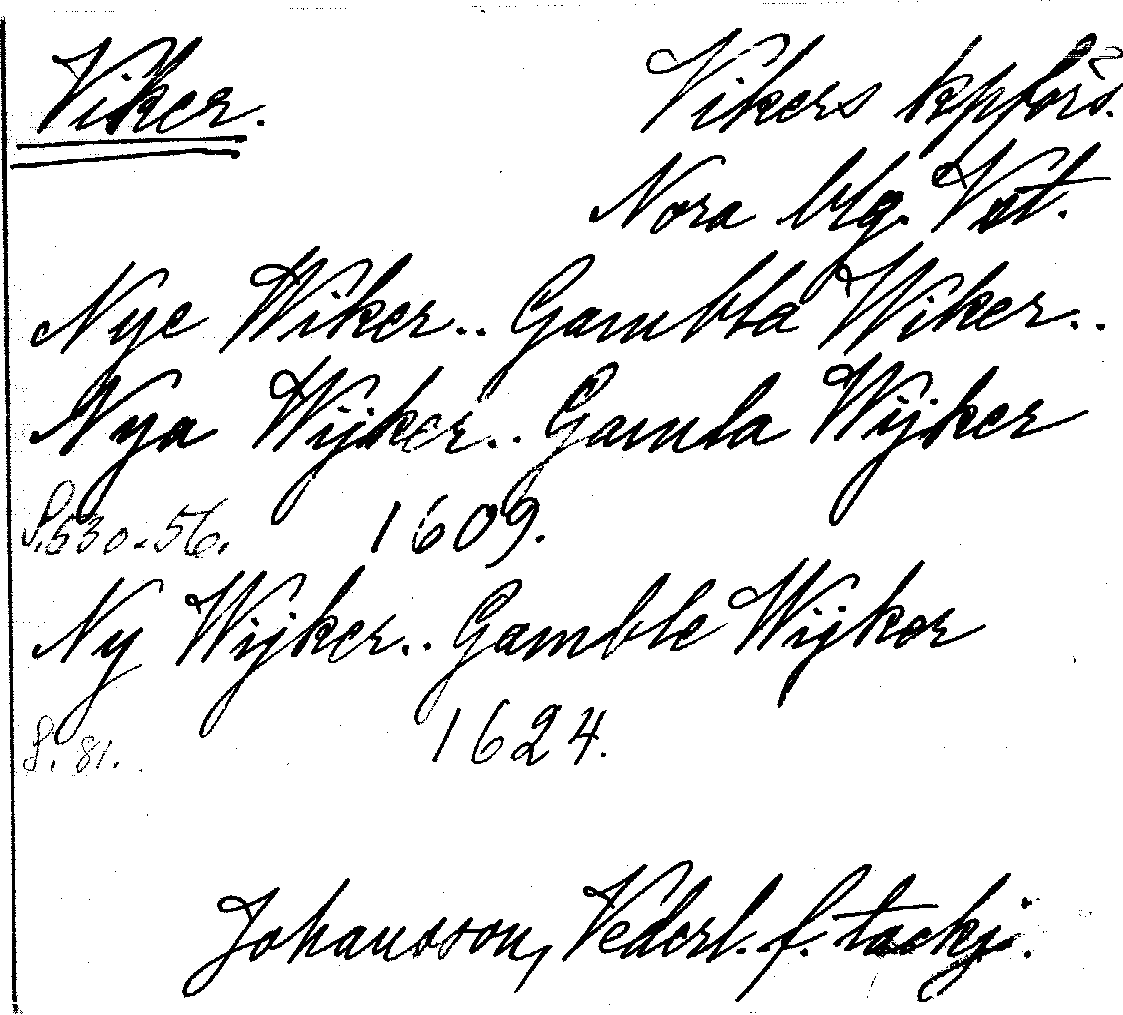 Viker.
Vikers kpförs.
Nora blg. Vst.
Nye Wiker.. Gambla Wiker..
Nya Wijker.. Gamla Wijker
S. 530-56. 1609.
Ny Wijker.. Gamble Wijker
S. 81. 1624.
Johansson, Vederl. f. tackj.